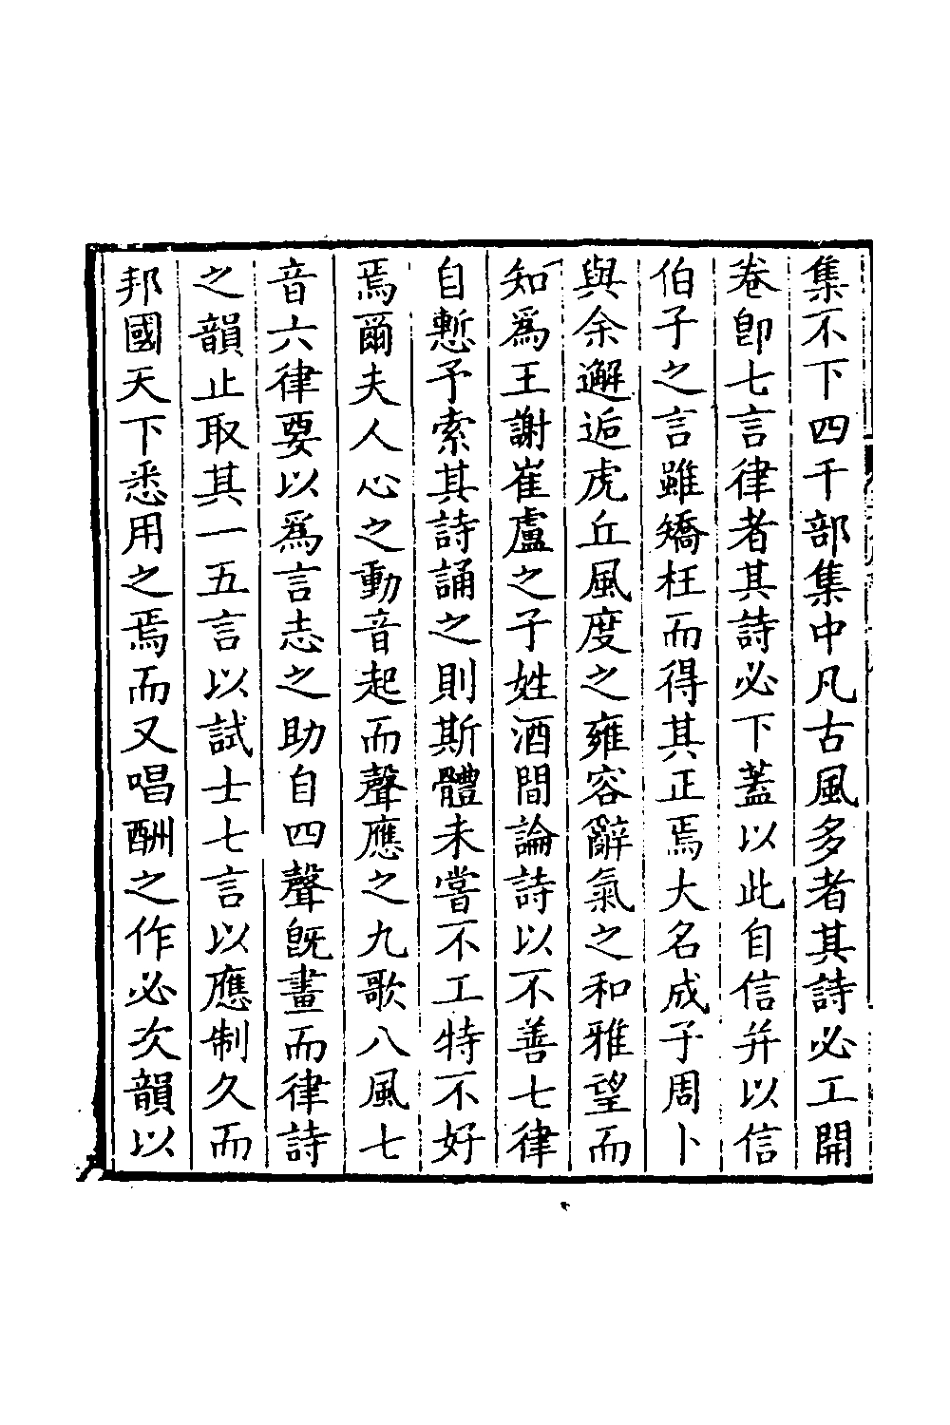 集不下四千部集中凡古風多者其詩必工開
卷卽七言律者其詩必下蓋以此自信幷以信
伯子之言雖矯枉而得其正焉大名成子周卜
與余邂逅虎丘風度之雍容辭氣之和雅望而
知爲王謝崔盧之子姓酒間論詩以不善七律
自慙予索其詩誦之則斯體未嘗不工特不好
焉爾夫人心之動音起而聲應之九歌八風七
音六律要以爲言志之助自四聲旣畫而律詩
之韻止取其一五言以試士七言以應制久而
邦國天下悉用之焉而又唱酬之作必次韻以